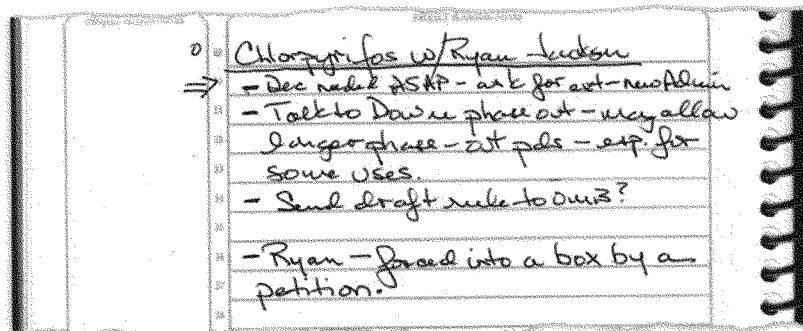 Chlorpyrifos w/Ryan Jackson
⇒ - Dec needed ASAP - ask for ext - new Admin
- Talk to Dow re phase out - may allow
longer phase-out pds - esp. for
some uses.
- Send draft rule to OMB?
- Ryan - forced into a box by a
petition.